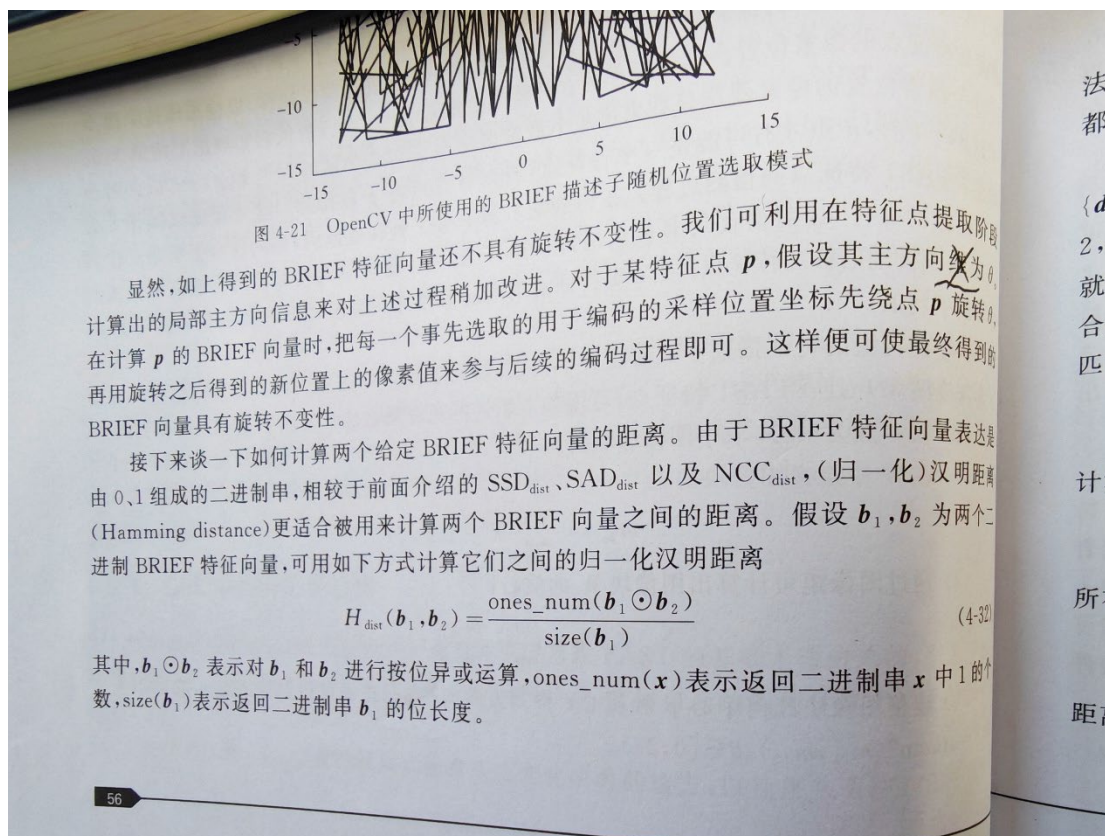 -5
-10
-15
-15 -10 -5 0 5 10 15
图 4-21 OpenCV 中所使用的 BRIEF 描述子随机位置选取模式
显然,如上得到的 BRIEF 特征向量还不具有旋转不变性。我们可利用在特征点提取阶段
计算出的局部主方向信息来对上述过程稍加改进。对于某特征点 p,假设其主方向为 θ,
在计算 p 的 BRIEF 向量时,把每一个事先选取的用于编码的采样位置坐标先绕点 p 旋转 θ,
再用旋转之后得到的新位置上的像素值来参与后续的编码过程即可。这样便可使最终得到的
BRIEF 向量具有旋转不变性。
接下来谈一下如何计算两个给定 BRIEF 特征向量的距离。由于 BRIEF 特征向量表达是
由 0、1 组成的二进制串,相较于前面介绍的 SSD_dist、SAD_dist 以及 NCC_dist,(归一化)汉明距离
(Hamming distance)更适合被用来计算两个 BRIEF 向量之间的距离。假设 b₁,b₂ 为两个二
进制 BRIEF 特征向量,可用如下方式计算它们之间的归一化汉明距离
H_dist(b₁,b₂) = ones_num(b₁⊙b₂) / size(b₁) (4-32)
其中,b₁⊙b₂ 表示对 b₁ 和 b₂ 进行按位异或运算,ones_num(x)表示返回二进制串 x 中 1 的个
数,size(b₁)表示返回二进制串 b₁ 的位长度。
56
法
都
{d
2,
就
合
匹
计
所
距